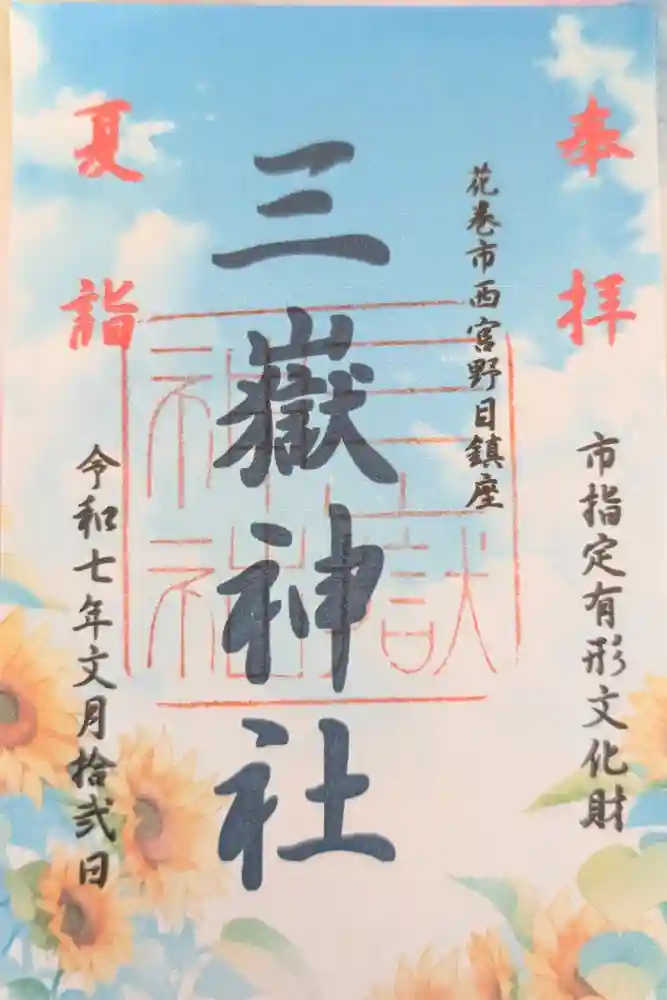 奉拝
市指定有形文化財
花巻市西宮野目鎮座
三嶽神社
三嶽神社
夏詣
令和七年文月拾弐日